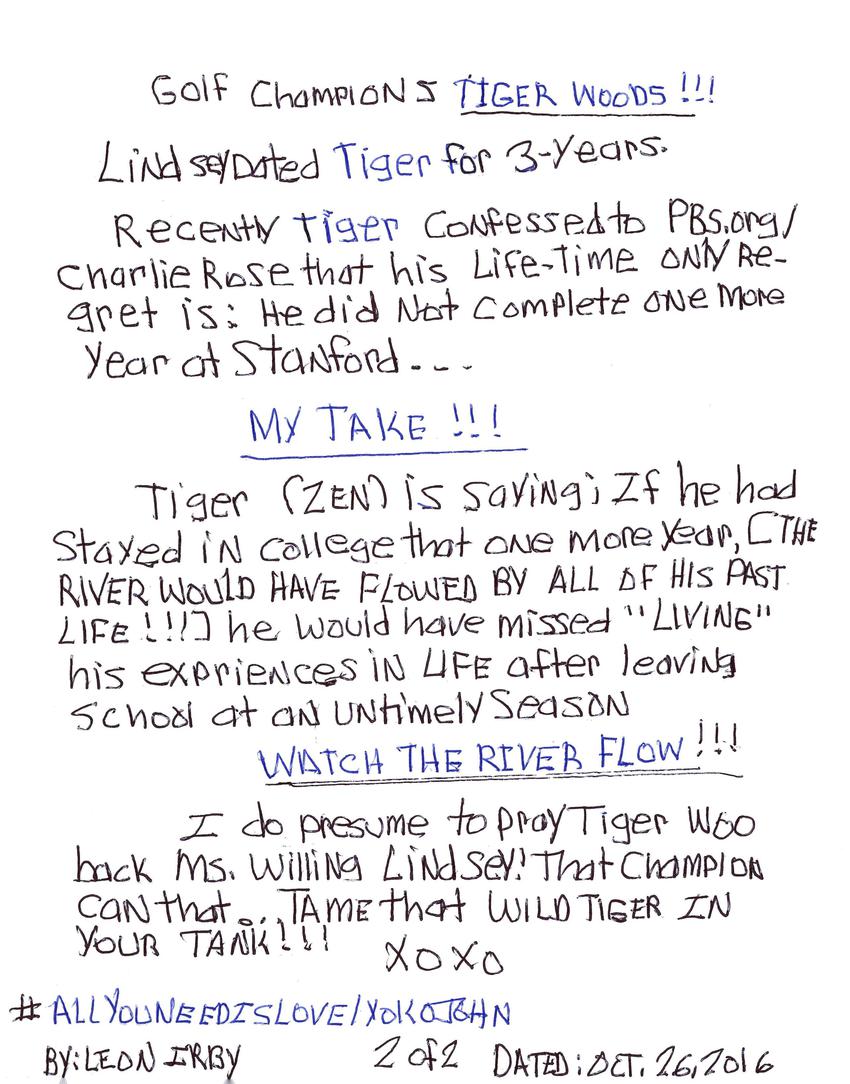 Golf Champions TIGER WOODS!!!
Lindsey Dated Tiger for 3-Years.
Recently Tiger Confessed to PBS.org/
Charlie Rose that his Life-Time ONLY Re-
gret is: He did Not Complete ONE More
Year at Stanford...
MY TAKE!!!
Tiger (ZEN) is saying; If he had
Stayed in college that one more year, [THE
RIVER WOULD HAVE FLOWED BY ALL OF HIS PAST
LIFE!!!] he would have missed "LIVING"
his expriences in LIFE after leaving
School at an untimely Season
WATCH THE RIVER FLOW!!!
I do presume to pray Tiger Woo
back Ms. Willing Lindsey! That Champion
CAN that... TAME that WILD TIGER IN
YOUR TANK!!! XOXO
#ALLYOUNEEDISLOVE/YOKOJOHN
BY: LEON IRBY 2 of 2 DATED: OCT. 26, 2016